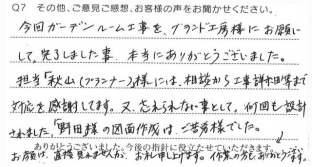 Q7 その他、ご意見ご感想、お客様の声をお聞かせください。
今回ガーデンルーム工事を、グランド工房様にお願い
して、完了しました事、本当にありがとうございました。
担当「秋山(プランナー)」様には、相談から工事詳細等まで
対応を感謝してます。又、忘れられない事として、何回も設計
されました、「野田様の図面作成は、ご苦労様でした。
ありがとうございました。今後の指針に役立たせていただきます。
お顔は、直接見れませんが、お礼申し上げます。作業の方もありがとうございます。